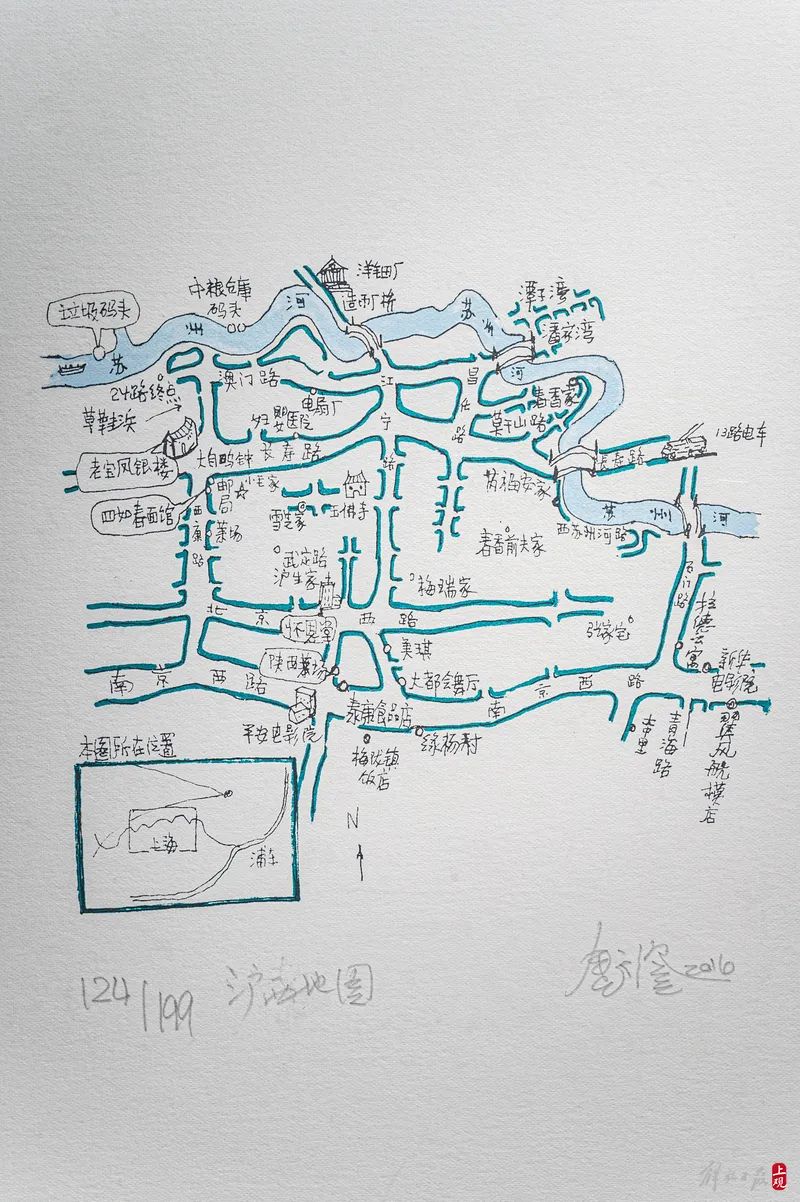 洋钿厂
造币厂桥
中粮仓库
码头
垃圾码头
苏
州
河
苏
州
河
潭子湾
潘家湾
24路终点
澳门路
江
宁
路
昌
化
路
草鞋浜
电扇厂
妇婴医院
莫干山路
春香家
13路电车
老宝凤银楼
大自鸣钟
长寿路
长寿路
四如春面馆
邮局
小毛家
雪芝家
玉佛寺
芮福安家
苏
州
河
西康路
菜场
春香前夫家
西苏州河路
武定路
沪生家
梅瑞家
石门路
拉德公寓
北
京
西
路
怀恩堂
张家宅
美琪
陕西菜场
大都会舞厅
新华
电影院
南
京
西
路
南
京
西
路
泰康食品店
平安电影院
绿杨村
梅陇镇
饭店
青海路
翼风航模店
本图所在位置
上海
浦东
N
124/199
沪生地图
金宇澄 2016
解放日报
上观